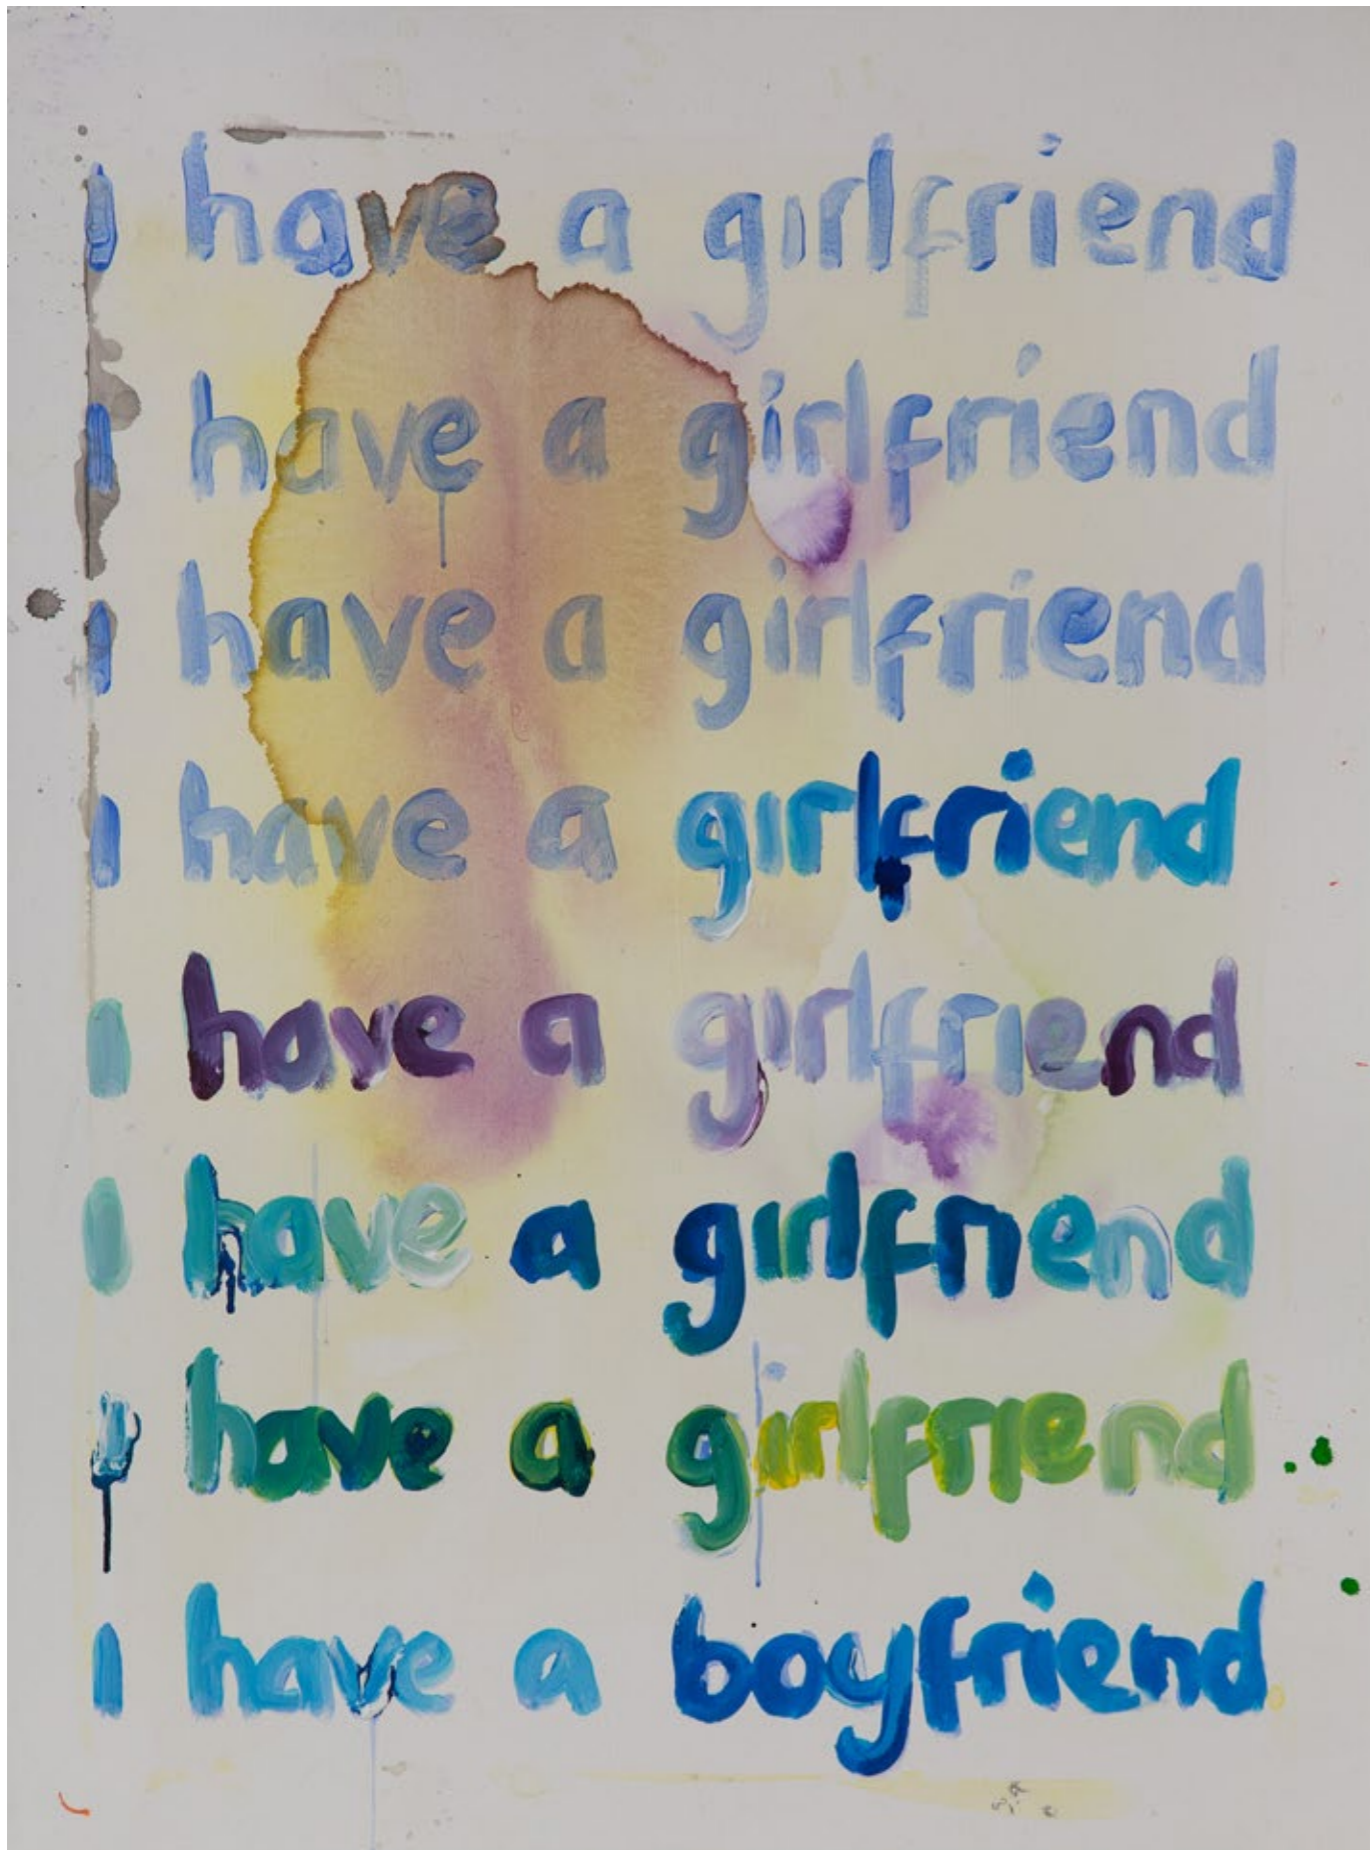 i have a girlfriend
i have a girlfriend
i have a girlfriend
i have a girlfriend
i have a girlfriend
i have a girlfriend
i have a girlfriend
i have a boyfriend